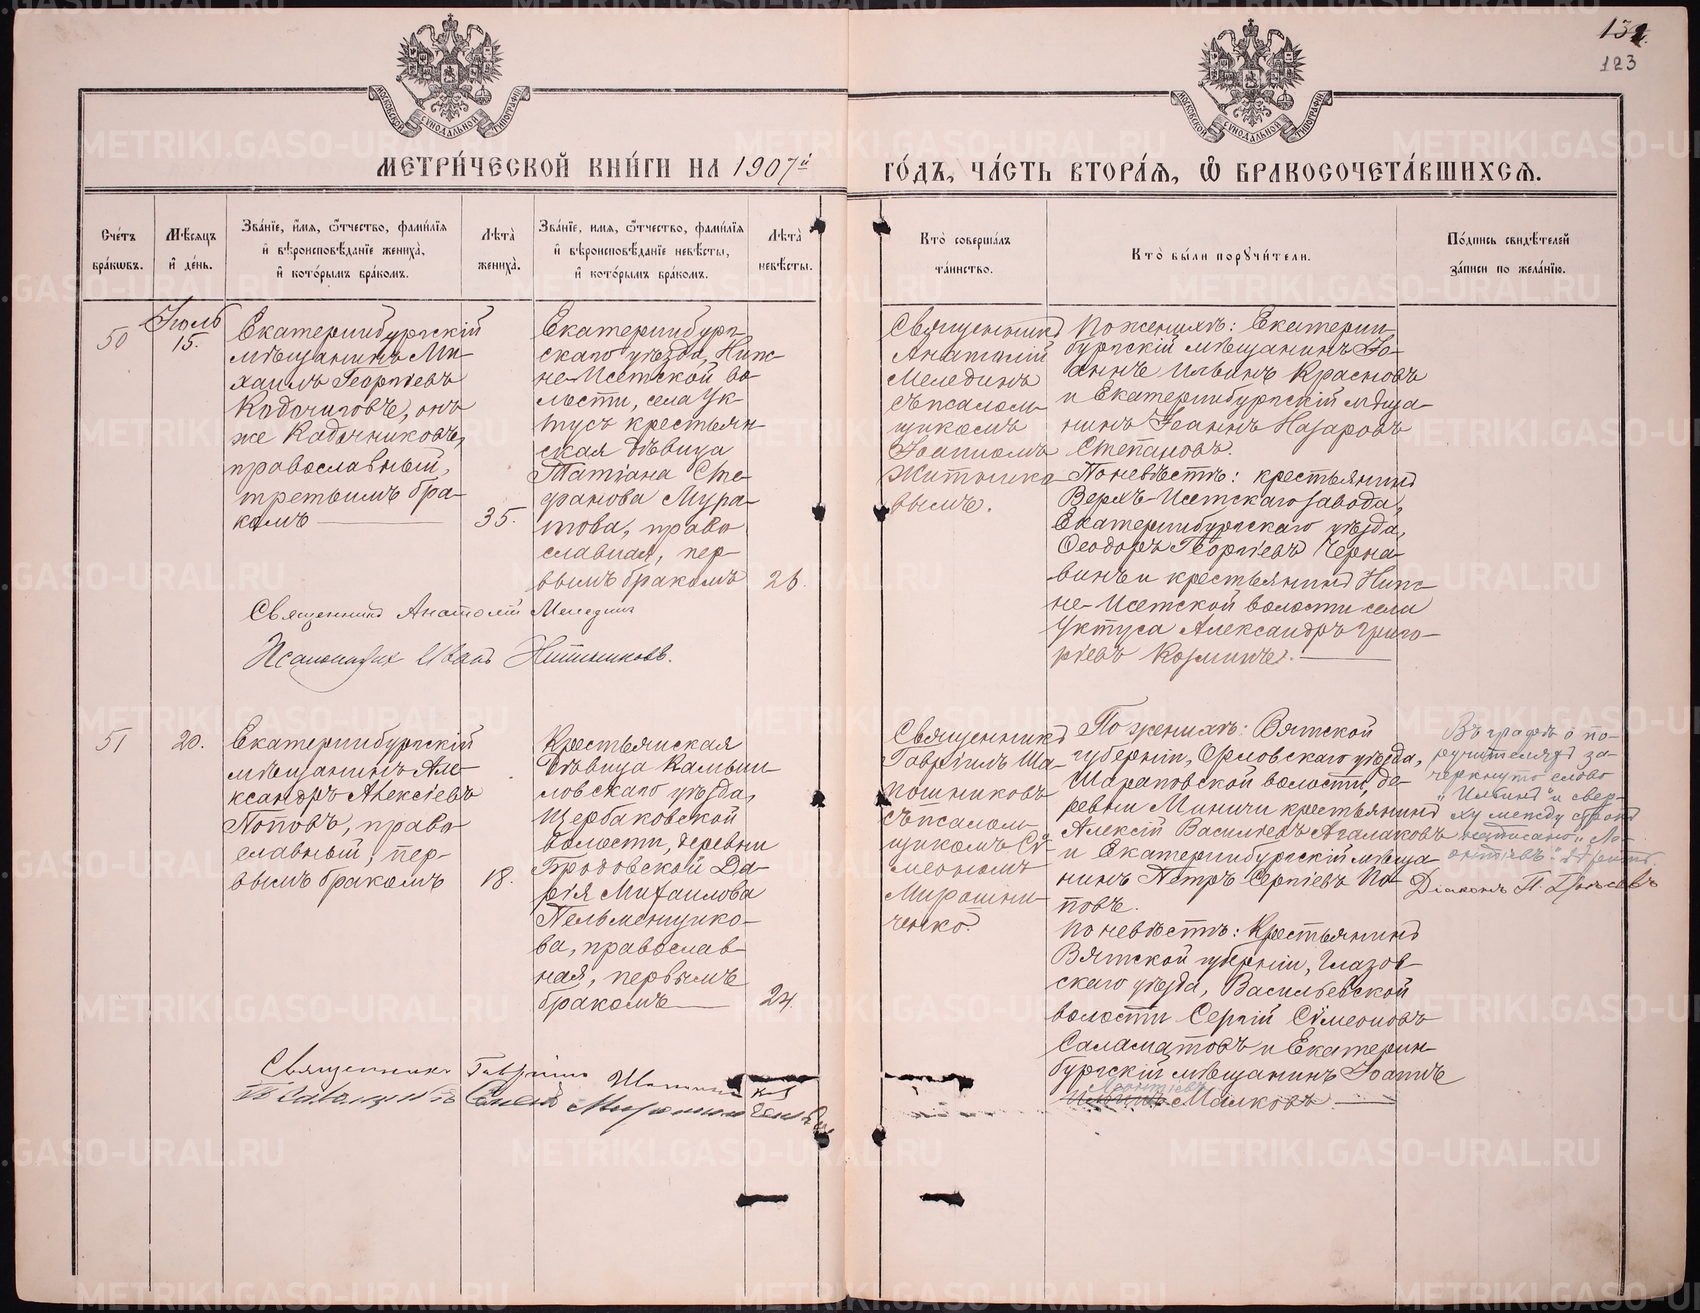 132.
123
МОСКОВСКОЙ СѴНОДАЛЬНОЙ ТИПОГРАФІИ
МОСКОВСКОЙ СѴНОДАЛЬНОЙ ТИПОГРАФІИ
МЕТРИ́ЧЕСКОЙ КНИ́ГИ НА 1907й
ГО́ДЪ, ЧА́СТЬ ВТОРА́Ѧ, Ѽ БРАКОСОЧЕТА́ВШИХСѦ.
Сче́тъ
бра́кѡвъ.
Мѣ́сяцъ
и҆ де́нь.
Зва́нїе, и҆́мѧ, ѻ҆́тчество, фами́лїѧ
и҆ вѣроисповѣ́данїе жениха̀,
и҆ кото́рымъ бра́комъ.
Лѣ́та̀
жениха̀.
Зва́нїе, имѧ, ѻ҆́тчество, фами́лїѧ
и҆ вѣроисповѣ́данїе невѣ́сты,
и҆ кото́рымъ бра́комъ.
Лѣ́та̀
невѣ́сты.
Кто̀ соверша́лъ
та́инство.
Кто̀ бы́ли порꙋчи́тели.
По́дпись свидѣ́телей
за́писи по жела́нїю.
50
Іюль
15.
Екатеринбургскій
мѣщанинъ Ми-
хаилъ Георгіевъ
Кодочиговъ, онъ
же Кадочниковъ,
православный,
третьимъ бра-
комъ
35.
Екатеринбург-
скаго уѣзда, Ниж-
не-Исетской во-
лости, села Ук-
тусъ крестьян-
ская дѣвица
Татіана Сте-
фанова Мура-
това, право
славная, пер-
вымъ бракомъ
26.
Священникъ
Анатолій
Мелединъ
съ псалом-
щикомъ
Іоанномъ
Житнико-
вымъ.
По женихѣ: Екатерин-
бургскій мѣщанинъ Іо-
аннъ Ильинъ Красновъ
и Екатеринбургскій мѣща-
нинъ Іоаннъ Назаровъ
Степановъ.
По невѣстѣ: крестьянинъ
Верхъ-Исетскаго завода,
Екатеринбургскаго уѣзда,
Ѳеодоръ Георгіевъ Черна-
винъ и крестьянинъ Ниж-
не-Исетской волости села
Уктуса Александръ Григо-
ріевъ Козминъ.
Священникъ Анатолій Меледин
Псаломщикъ Иванъ Житниковъ.
51
20.
Екатеринбургскій
мѣщанинъ Але-
ксандръ Алексіевъ
Поповъ, право-
славный, пер-
вымъ бракомъ
18.
Крестьянская
дѣвица Камыш-
ловскаго уѣзда,
Щербаковской
волости, деревни
Бродовской Да-
рія Михаилова
Пельменщико-
ва, православ-
ная, первымъ
бракомъ
24.
Священникъ
Гавріилъ Ша-
пошниковъ
съ псалом-
щикомъ Сѵ-
меономъ
Мирошни-
ченко.
По женихѣ: Вятской
губерніи, Орловскаго уѣзда,
Шараповской волости, де-
ревни Миничи крестьянинъ
Алексій Васильевъ Агалаковъ
и Екатеринбургскій мѣща-
нинъ Петръ Сергіевъ По-
повъ.
По невѣстѣ: Крестьянинъ
Вятской губерніи, Глазов-
скаго уѣзда, Васильевской
волости Сергій Сѵмеоновъ
Саламатовъ и Екатерин-
бургскій мѣщанинъ Іоаннъ
Леонтіевъ
Ильинъ Малковъ.
Въ графѣ о по-
ручителяхъ за-
черкнуто слово
"Ильинъ" и свер-
ху между строкъ
надписано "Ле-
онтіевъ".
Діаконъ П.
Священникъ Гавріилъ Шапошников
Псаломщикъ Симеонъ Мирошниченко